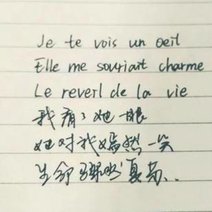 Je te vois un oeil
Elle me souriait charme
Le reverl de la vie
我看了她一眼
她对我嫣然一笑
生命突然复苏..